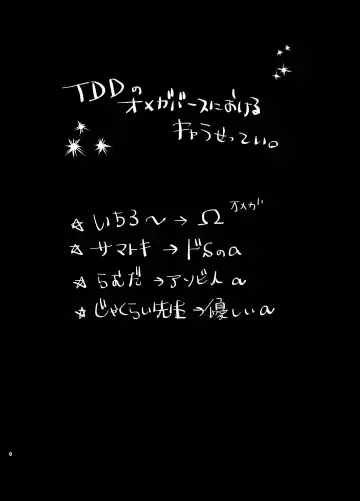 TDDの
オメガバースにおける
キャラせってい。
オメガ
☆いちろ〜→Ω
☆サマトキ→ドSのα
☆らむだ→アソビ人α
☆じゃくらい先生→優しいα
6